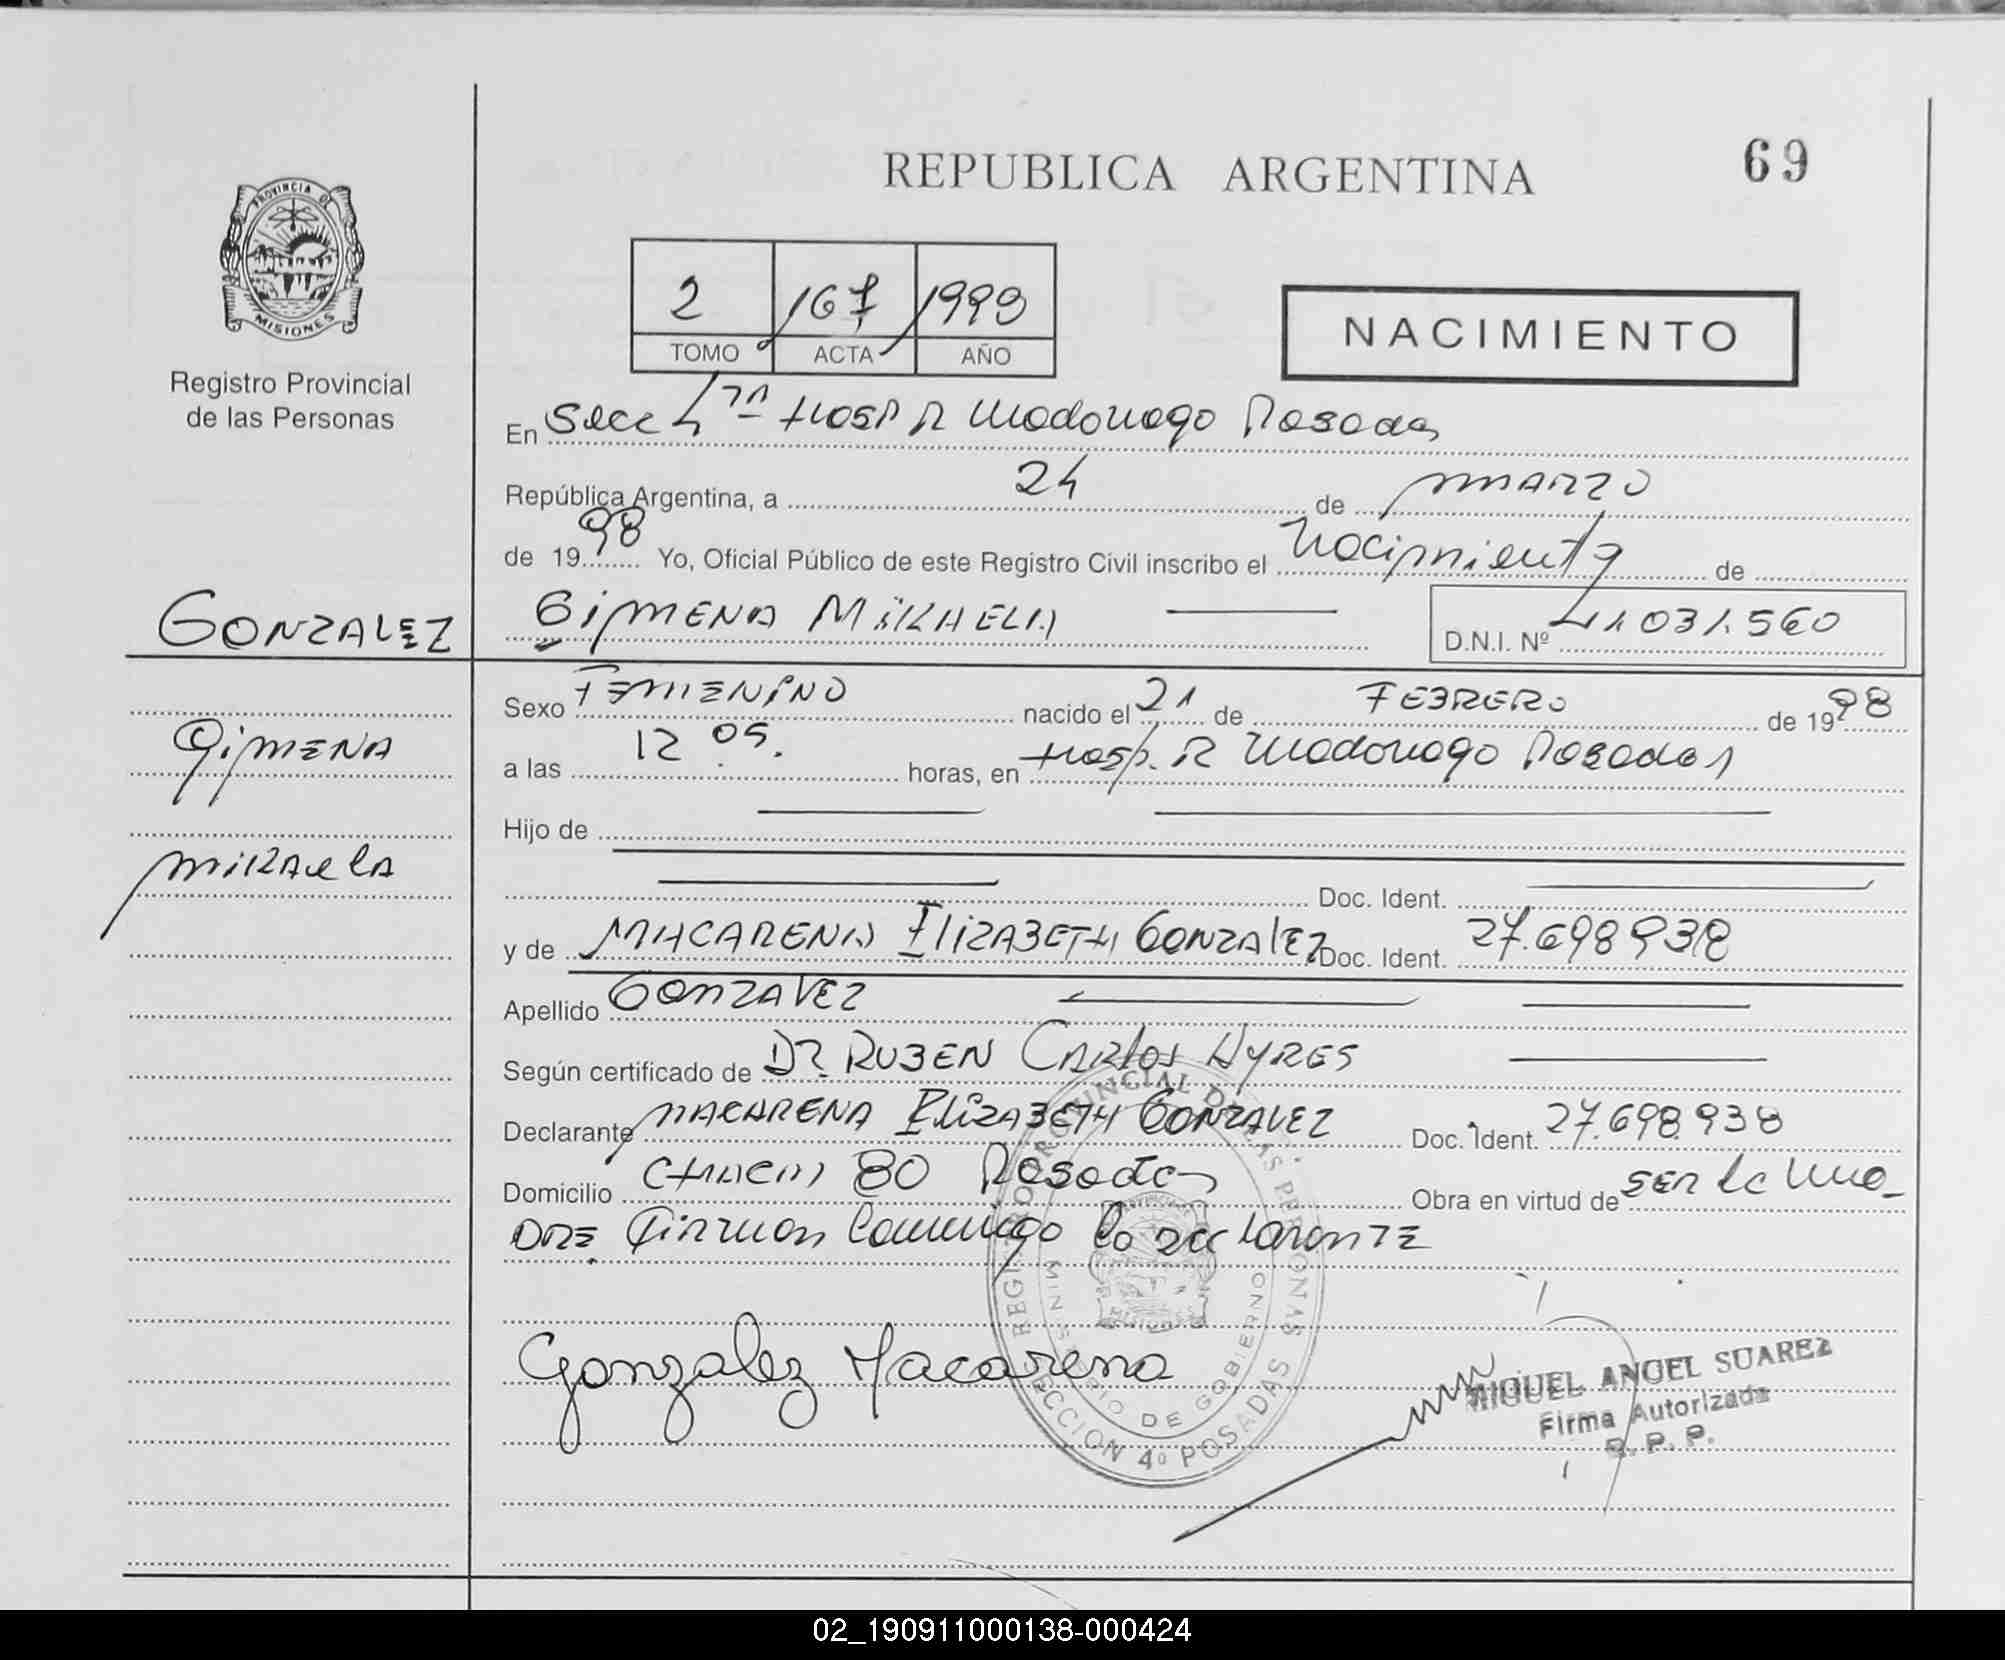 REPUBLICA ARGENTINA
69
PROVINCIA DE
MISIONES
Registro Provincial
de las Personas
2 167 1998
TOMO ACTA AÑO
NACIMIENTO
En Secc 4ta Hosp R Madariaga Posadas
República Argentina, a 24 de marzo
de 1998 Yo, Oficial Público de este Registro Civil inscribo el Nacimiento de
GONZALEZ
GIMENA MIKAELA D.N.I. Nº 41.031.560
Sexo FEMENINO nacido el 21 de FEBRERO de 1998
GIMENA
a las 12 05. horas, en Hosp. R Madariaga Posadas
Hijo de
MIKAela
Doc. Ident.
y de MACARENA ELIZABETH GONZALEZ Doc. Ident. 27.698.938
Apellido GONZALEZ
Según certificado de DR RUBEN CARLOS AYRES
Declarante MACARENA ELIZABETH GONZALEZ Doc. Ident. 27.698.938
Domicilio CHACRA 80 Posadas Obra en virtud de SER la Ma-
DRE. Firman Conmigo la declarante
Gonzalez Macarena
REGISTRO PROVINCIAL DE LAS PERSONAS
MINISTERIO DE GOBIERNO
SECCION 4º POSADAS
MIGUEL ANGEL SUAREZ
Firma Autorizada
R. P. P.
02_190911000138-000424